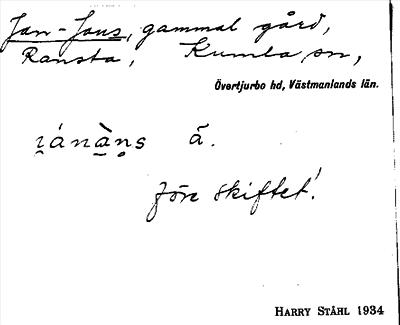 Jan-Jans, gammal gård,
Ransta, Kumla sn,
Övertjurbo hd, Västmanlands län.
i̯ánàn̥s ā.
före skiftet!
HARRY STÅHL 1934